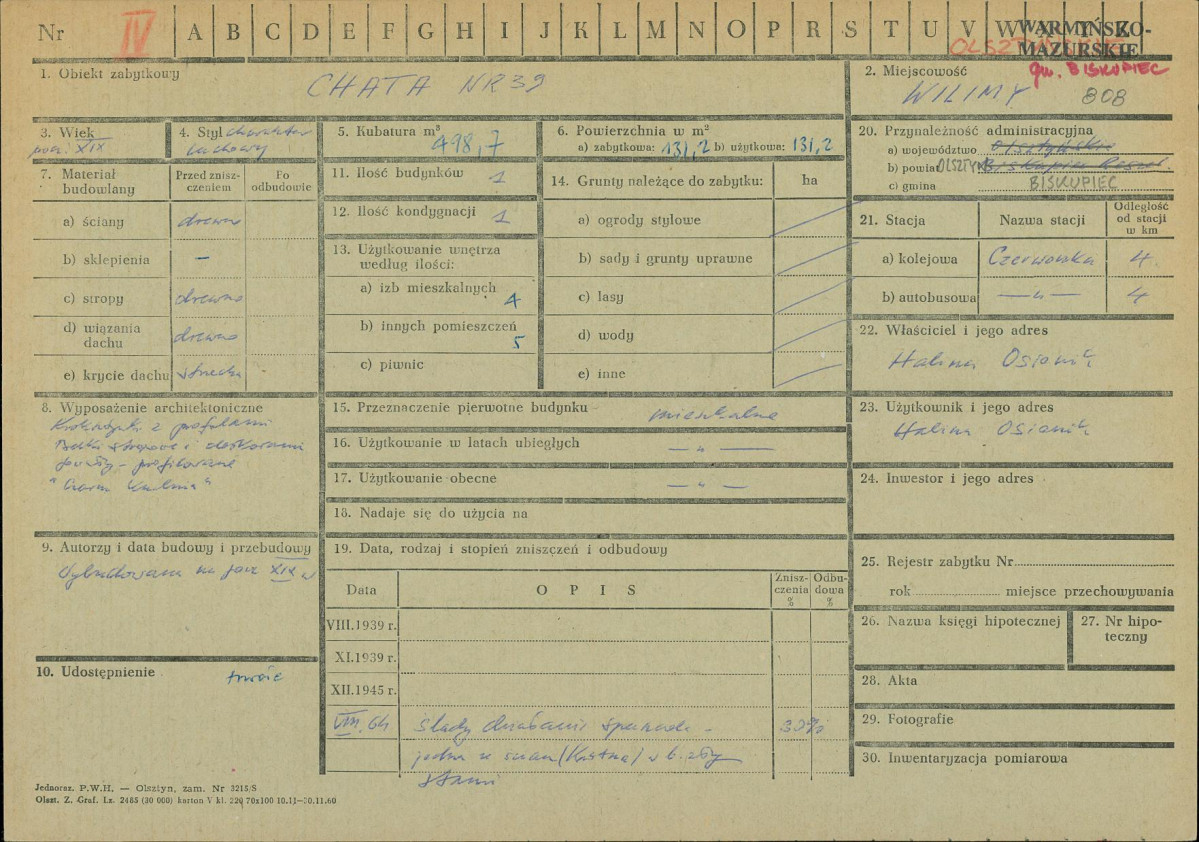 Nr IV A B C D E F G H I J K L M N O P R S T U V W
WARMIŃSKO-
MAZURSKIE
gm. BISKUPIEC
1. Obiekt zabytkowy
CHATA NR 39
2. Miejscowość
WILIMY 808
3. Wiek
pocz. XIX
4. Styl charakter
ludowy
5. Kubatura m³
498,7
6. Powierzchnia w m²
a) zabytkowa: 131,2 b) użytkowa: 131,2
7. Materiał
budowlany
Przed znisz-
czeniem
Po
odbudowie
a) ściany drewno
b) sklepienia –
c) stropy drewno
d) wiązania
dachu drewno
e) krycie dachu strzecha
8. Wyposażenie architektoniczne
z profilami
Belki stropowe i deskowanie
profilowane
"Czarna Kuchnia"
9. Autorzy i data budowy i przebudowy
Wybudowana na pocz XIX w
10. Udostępnienie
11. Ilość budynków 1
12. Ilość kondygnacji 1
13. Użytkowanie wnętrza
według ilości:
a) izb mieszkalnych 4
b) innych pomieszczeń 5
c) piwnic
14. Grunty należące do zabytku: ha
a) ogrody stylowe
b) sady i grunty uprawne
c) lasy
d) wody
e) inne
15. Przeznaczenie pierwotne budynku mieszkalne
16. Użytkowanie w latach ubiegłych — „ —
17. Użytkowanie obecne — „ —
18. Nadaje się do użycia na
19. Data, rodzaj i stopień zniszczeń i odbudowy
Data
OPIS
Znisz-
czenia
%
Odbu-
dowa
%
VIII.1939 r.
XI.1939 r.
XII.1945 r.
VIII. 64 ślady działania 30%
jedna ze ścian w b. złym
stanie
20. Przynależność administracyjna
a) województwo Olsztyńskie
b) powiat OLSZTYN Biskupiec Reszel
c) gmina BISKUPIEC
21. Stacja
Nazwa stacji
Odległość
od stacji
w km
a) kolejowa Czerwonka 4
b) autobusowa — „ — 4
22. Właściciel i jego adres
Halina Osionik
23. Użytkownik i jego adres
Halina Osionik
24. Inwestor i jego adres
25. Rejestr zabytku Nr
rok miejsce przechowywania
26. Nazwa księgi hipotecznej
27. Nr hipo-
teczny
28. Akta
29. Fotografie
30. Inwentaryzacja pomiarowa
Jednoraz. P.W.H. — Olsztyn, zam. Nr 3215/S
Olszt. Z. Graf. Lz. 2465 (30 000) karton V kl. 220 70x100 10.11—30.11.60